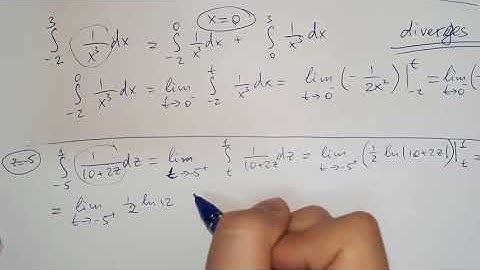 ∫_{-2}^{3} 1/x³ dx = ∫_{-2}^{0} 1/x³ dx + ∫_{0}^{3} 1/x³ dx   x=0   diverges
∫_{-2}^{0} 1/x³ dx = lim_{t→0⁻} ∫_{-2}^{t} 1/x³ dx = lim_{t→0⁻} (-1/2x²)|_{-2}^{t} = lim_{t→0⁻} (-
z=-5   ∫_{-5}^{1} 1/(10+2z) dz = lim_{t→-5⁺} ∫_{t}^{1} 1/(10+2z) dz = lim_{t→-5⁺} (1/2 ln|10+2z|)|_{t}^{1} =
= lim_{t→-5⁺} 1/2 ln 12